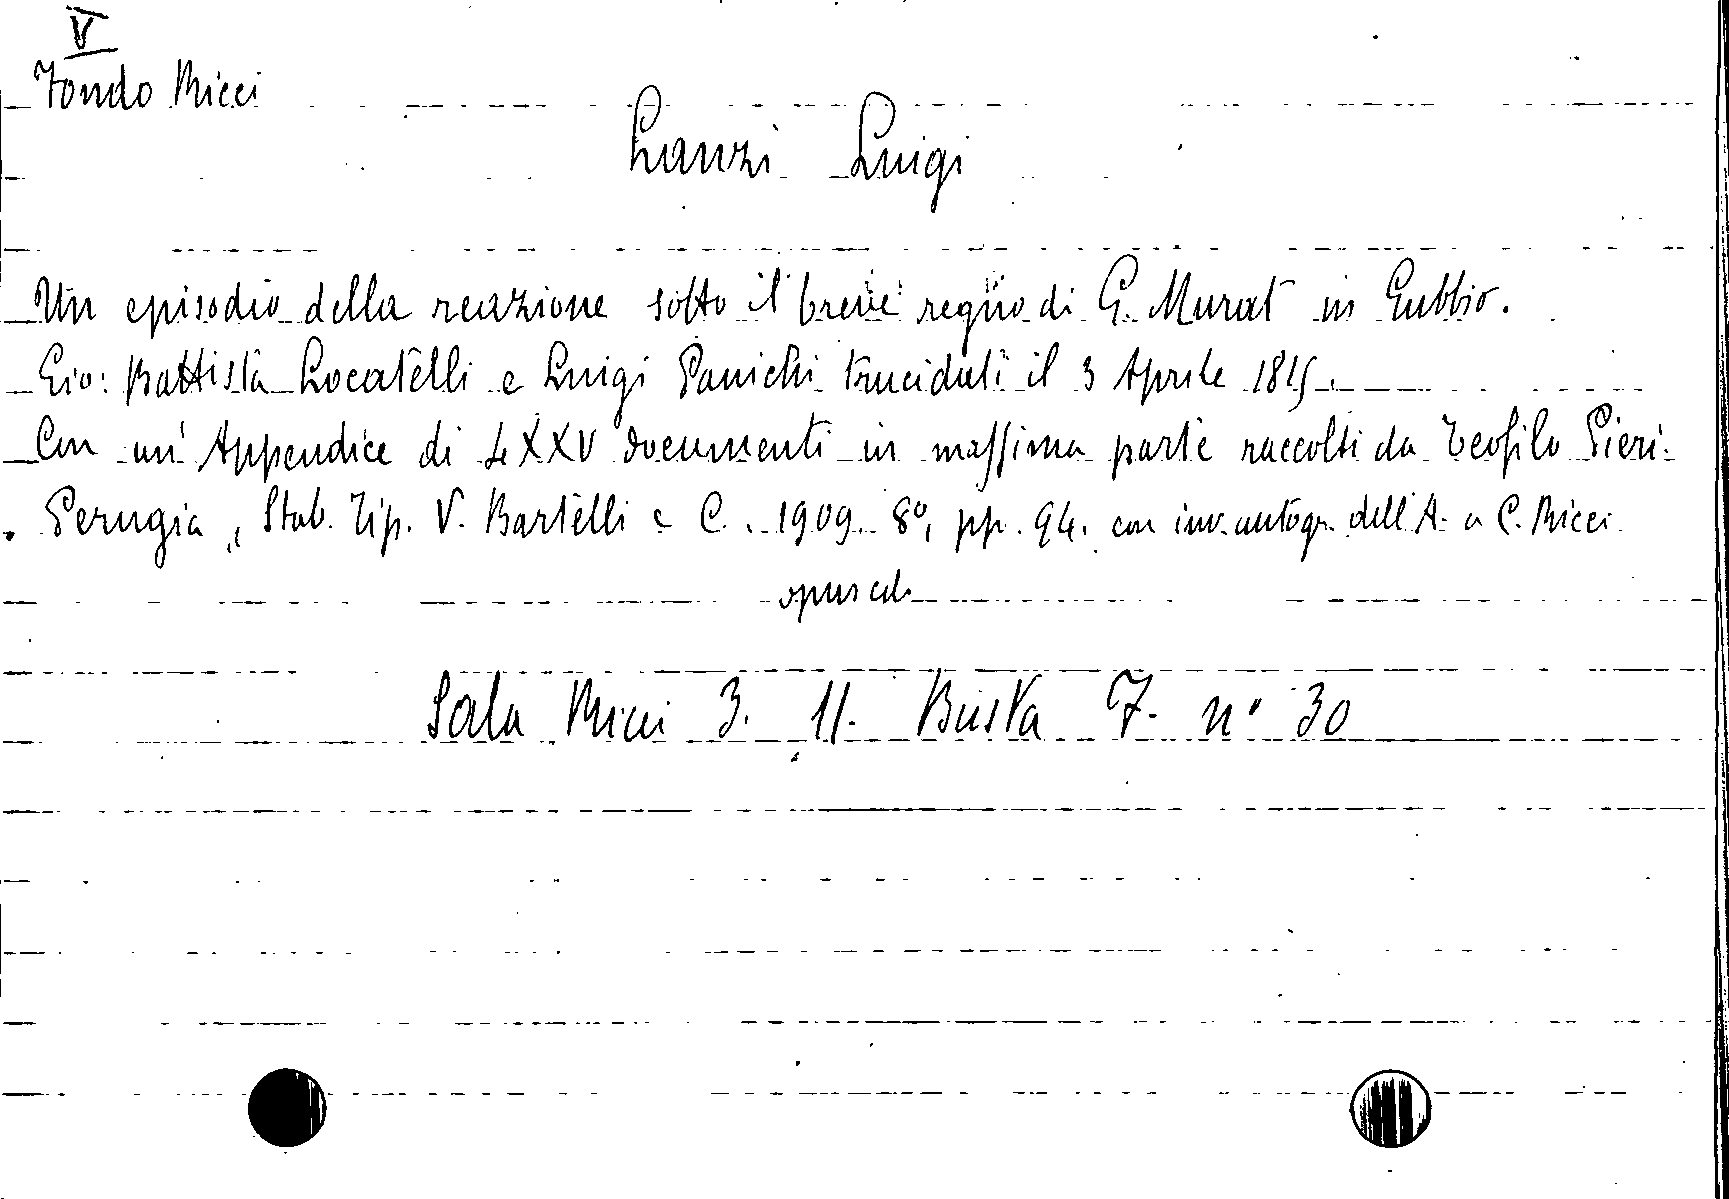 V
Fondo Ricci
Lanzi Luigi
Un episodio della reazione sotto il breve regno di G. Murat in Gubbio.
Gio: Battista Locatelli e Luigi Panichi trucidati il 3 Aprile 1815.
Con un' Appendice di LXXV documenti in massima parte raccolti da Teofilo Pieri.
Perugia, Stab. Tip. V. Bartelli e C. 1909. 8°, pp. 94. con inv. autogr. dell'A. a C. Ricci
opuscolo
Sala Ricci 3. 11. Busta 7. n° 30